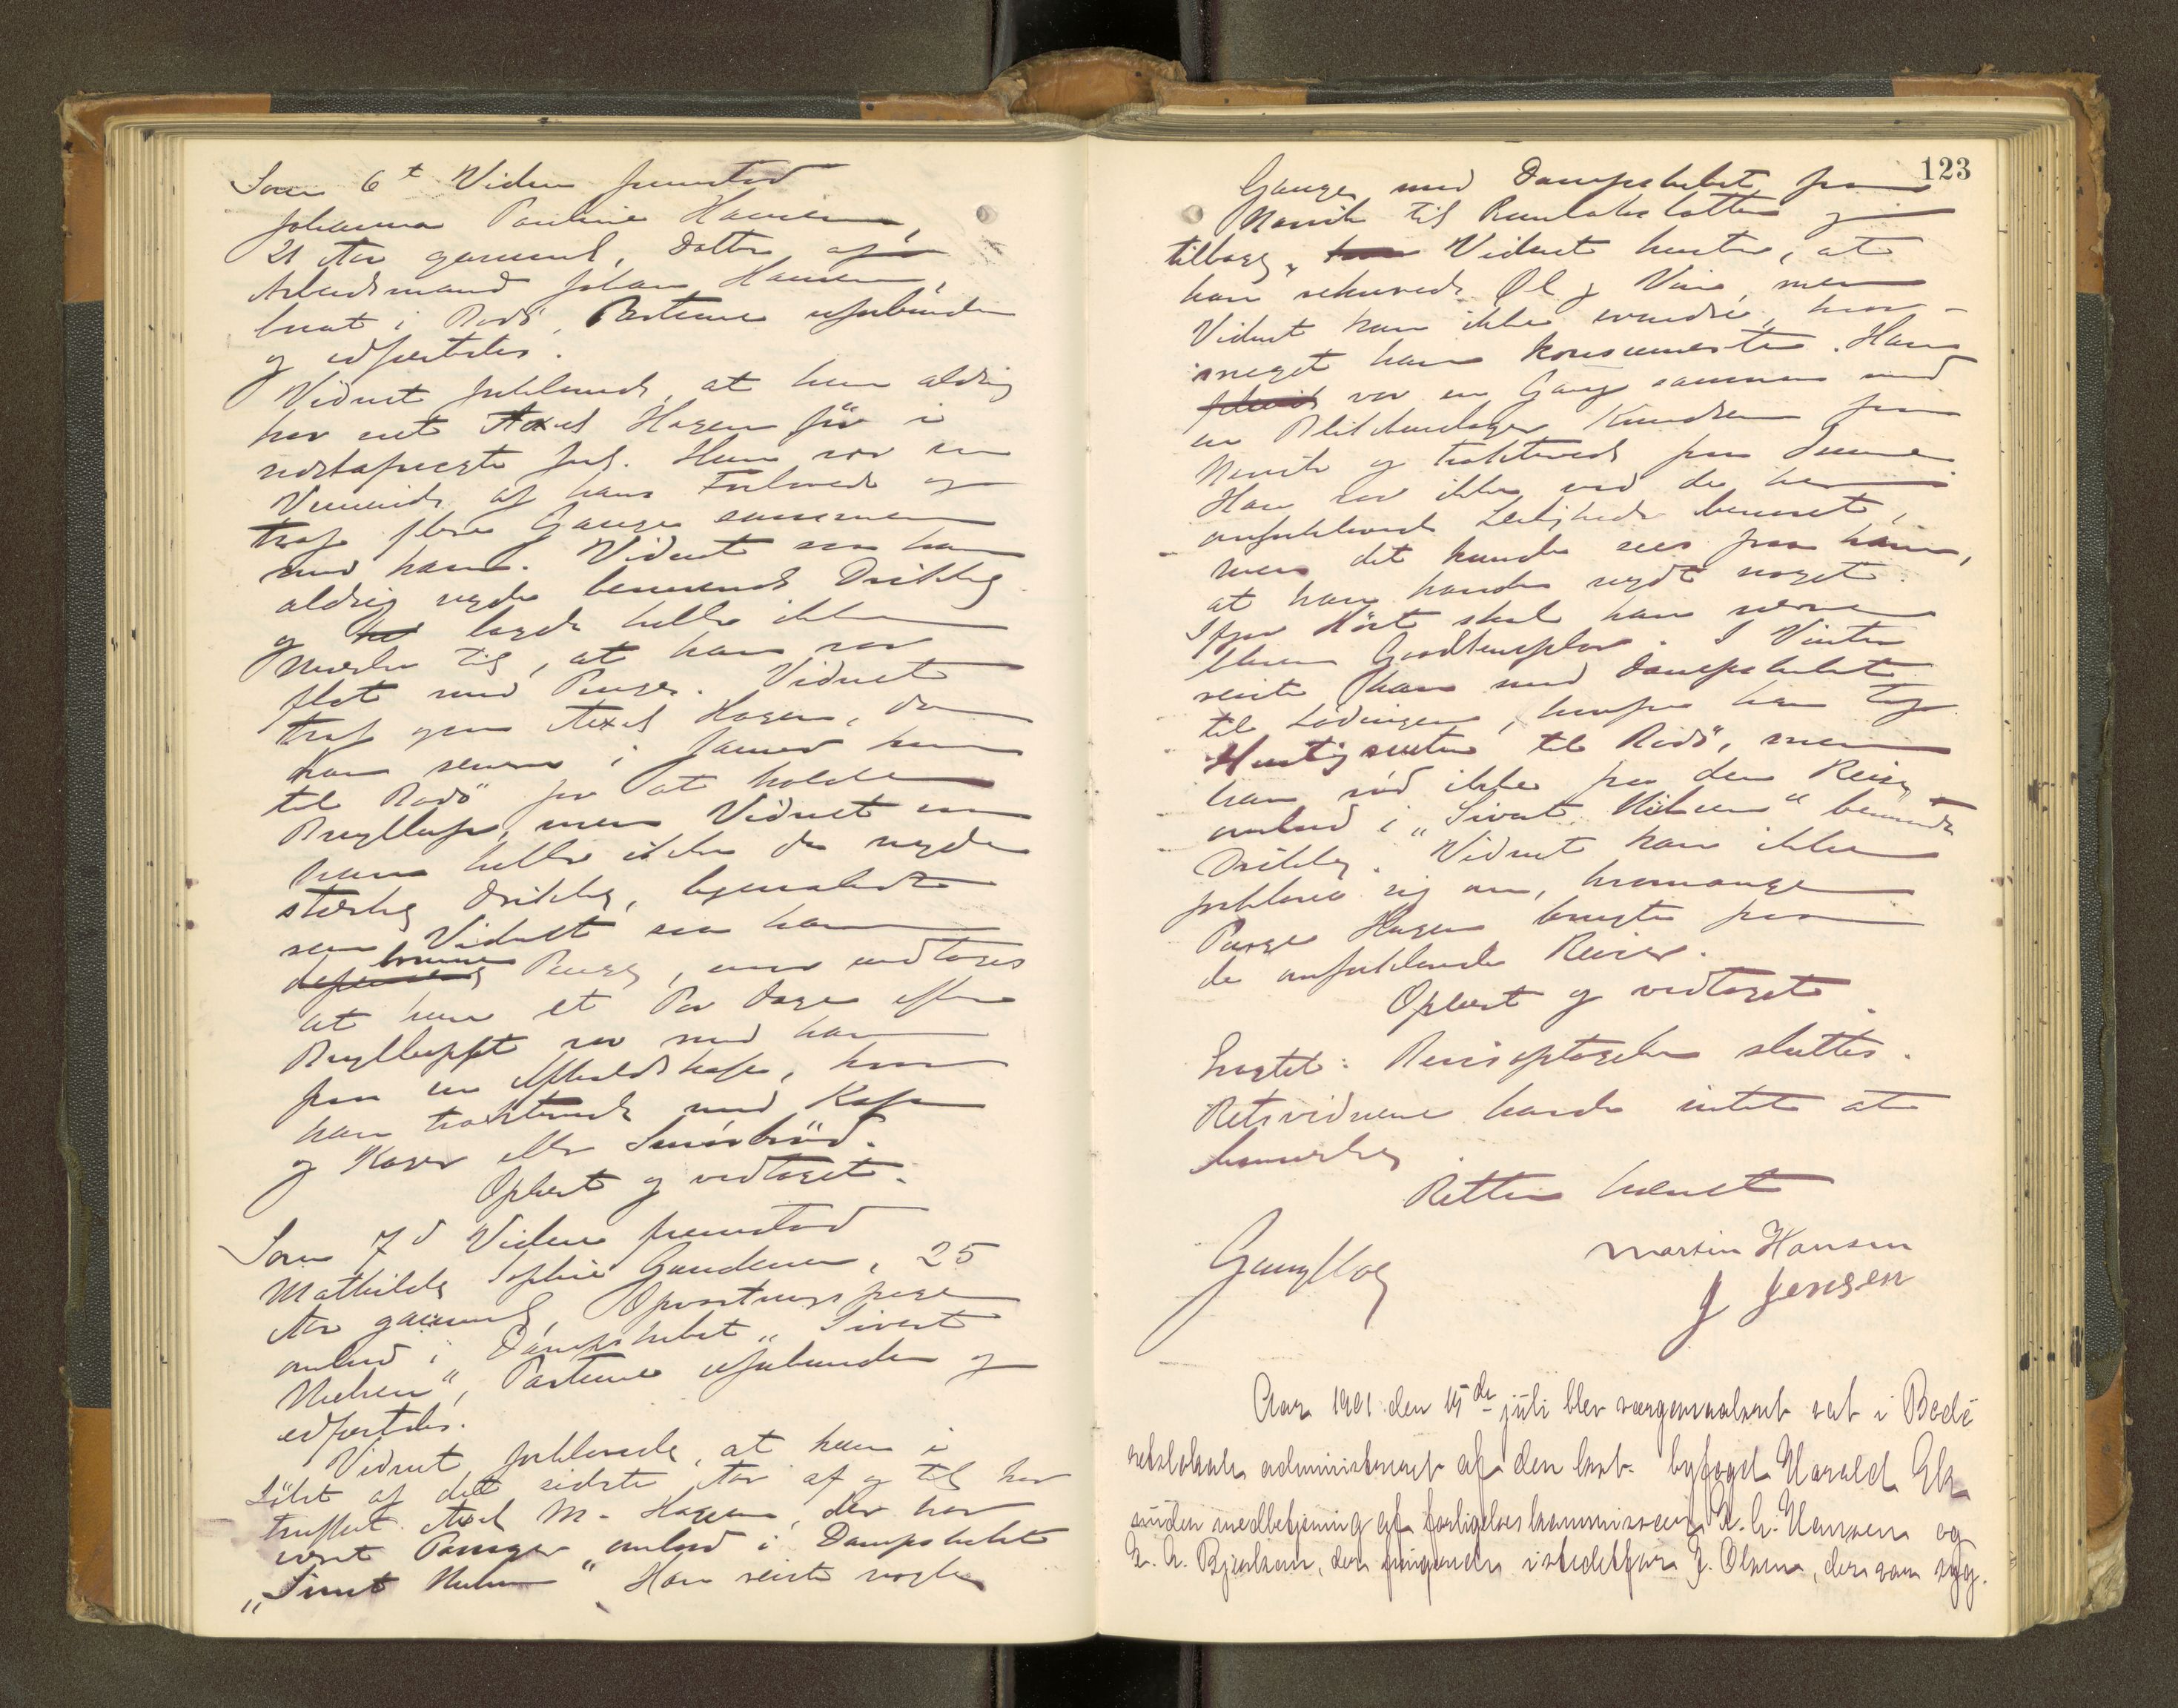 Som 6t Vidne fremstod
Johanna Pauline Hansen,
21 Aar gammel, Datter af
Arbeidsmand Johan Hansen,
boat i Bodö, Parterne uforbunden
og edfæstedes.
Vidnet forklarede, at hun aldrig
har seet Axel Hagen før i
sidstafvigte Jul. Hun var en
Veninde af hans Forlovede og
traf flere Gange sammen
med ham. Vidnet saa ham
aldrig nyde berusende Drikke
og lagde heller ikke
Mærke til, at han var
flot med Penge. Vidnet
traf igen Axel Hagen, da
han senere i Januar kom
til Bodö for at holde
Bryllup, men Vidnet saa
ham heller ikke da nyde
stærke Drikke, ligesaalidt
som Vidnet saa ham
bruge Penge, naar undtages
at hun et Par Dage efter
Bryllupet var med ham
paa en Afholdskafe, hvor
han trakterede med Kaffe
og Kager eller Smörbröd.
Oplæst og vedtaget.
Som 7d Vidne fremstod
Mathilde Sophie Gundersen, 25
Aar gammel, Opvartningspige
ombord i Dampskibet "Sivert
Nielsen", Parterne uforbunden og
edfæstedes.
Vidnet forklarede, at hun i
Löbet af det sidste Aar af og til har
truffet Axel M. Hagen, der har
været Passager ombord i Dampskibet
"Sivert Nielsen". Han reiste nogle
123
Gange med Dampskibet fra
Narvik til Rumbaksbotten og
tilbage. Vidnet husker, at
han rekvirerede Öl og Vin, men
Vidnet kan ikke erindre, hvor-
meget han konsumerte. Han
var en Gang sammen med
en Blikkenslager Knudsen fra
Narvik og trakterede paa denne.
Han var ikke ved de her
omforklarede Leiligheder beruset,
men det kunde sees paa ham,
at han havde nydt noget.
Ifjor Höst skal han være
bleven Goodtemplar. I Vinter
reiste han med Dampskibet
til Lödingen, hvorfra han tog
Hurtigruten til Bodö, men
han nöd ikke paa den Reise
ombord i "Sivert Nielsen" berusende
Drikke. Vidnet kan ikke
forklare sig om, hvormange
Penge Hagen brugte paa
de omforklarede Reiser.
Oplæst og vedtaget.
Sagtet: Bevisoptagelsen sluttes.
Retsvidnerne havde intet at
bemærke
Retten hævet
Martin Hansen
J Jensen
Aar 1901 den 15de juli blev værgemaalsret sat i Bodö
retslokale administreret af den kst. byfoged Harald Ek
under medbetjening af forligelseskommissær H. C. Hansen og
L. A. Bjerkan, der fungerede istedetfor J. Olsen, der var syg.